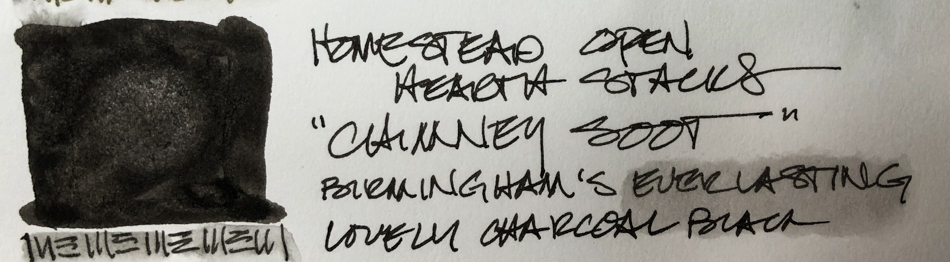 HOMESTEAD OPEN
HEARTH STACKS
"CHIMNEY SOOT"
BIRMINGHAM'S EVERLASTING
LOVELY CHARCOAL BLACK